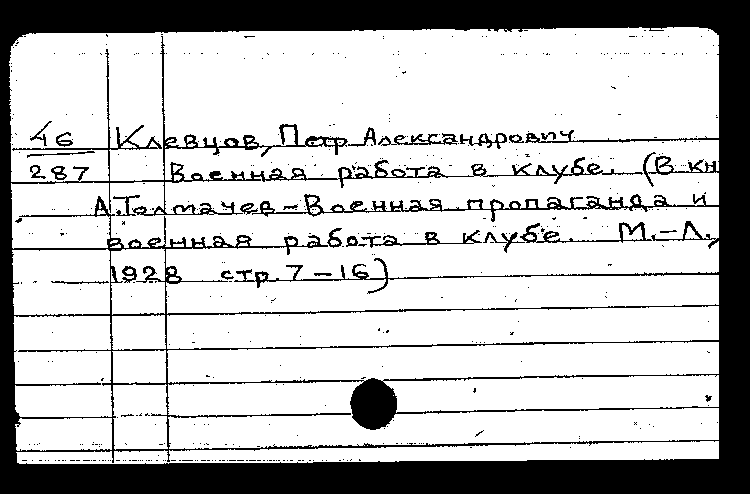 46 Клевцов, Петр Александрович
287 Военная работа в клубе. (В кн
А. Толмачев – Военная пропаганда и
военная работа в клубе. М.–Л.,
1928 стр. 7–16)